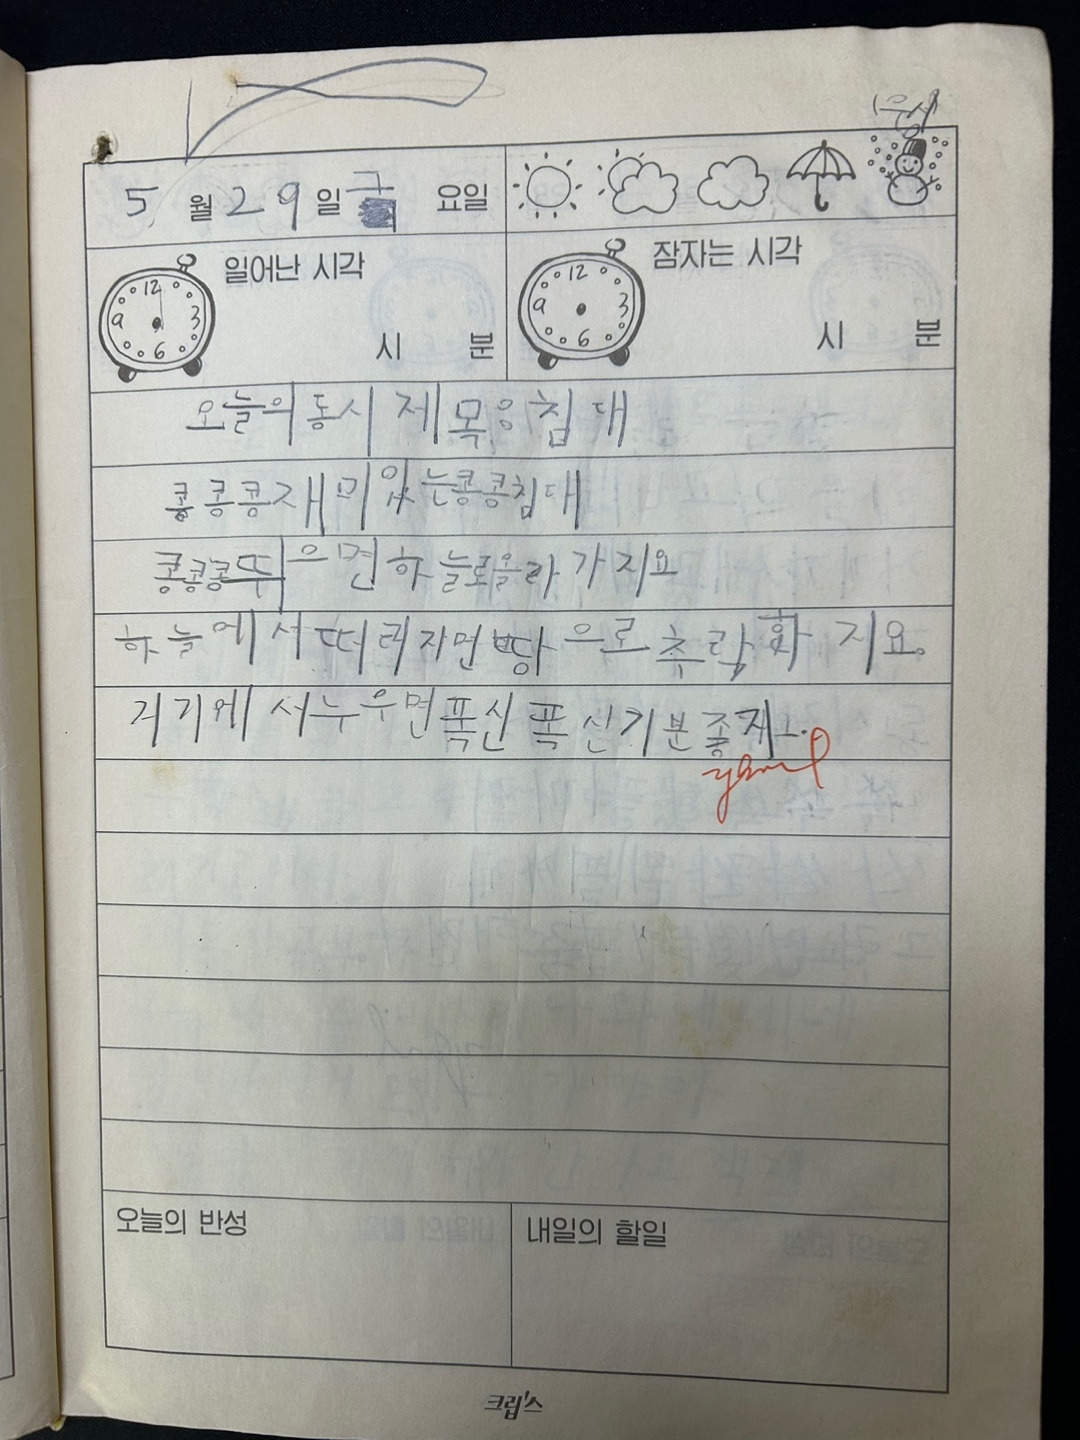 5 월 29 일 금 요일
일어난 시각
12
3
6
9
시 분
잠자는 시각
12
3
6
9
시 분
오늘의 동시 제목응 침대
콩콩콩 재미있는 콩콩침대
콩콩콩 뛰으면 하늘로 올라가지요
하늘에서 떠러지면 땅으로 추락화지요.
거기에서 누우면 폭신폭신 기분 좋지.
오늘의 반성
내일의 할일
크립스